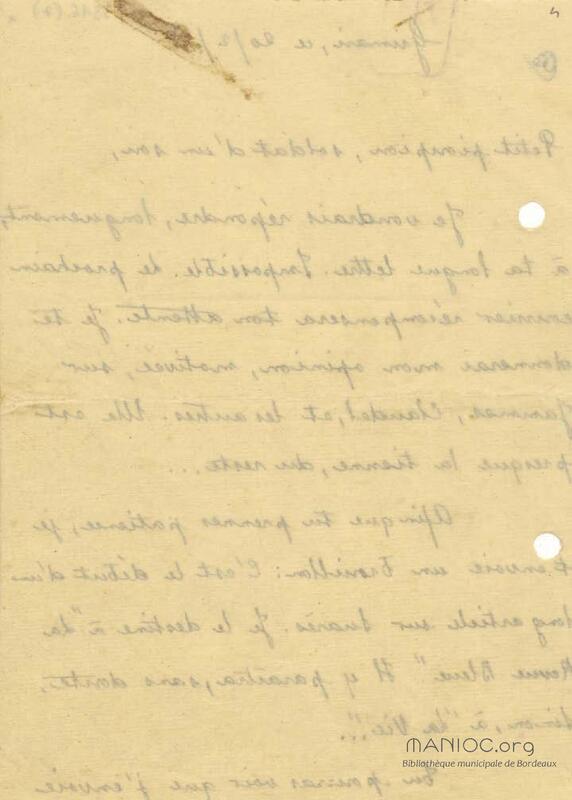 4
le 20/2/
Petit pioupiou, soldat d'un sou,
Je voudrais répondre, longuement,
à ta longue lettre. Impossible. Le prochain
courrier récompensera ton attente. Je te
donnerai mon opinion, motivée, sur
Jammes, Claudel, et les autres. Elle est
presque la tienne, du reste...
Afin que tu prennes patience, je
t'envoie un brouillon: C'est le début d'un
long article sur Suarès. Je le destine à "La
Revue Bleue" Il y paraîtra, sans doute,
sinon, à "La Vie"...
Tu pourras voir que j'envoie
MANIOC.org
Bibliothèque municipale de Bordeaux